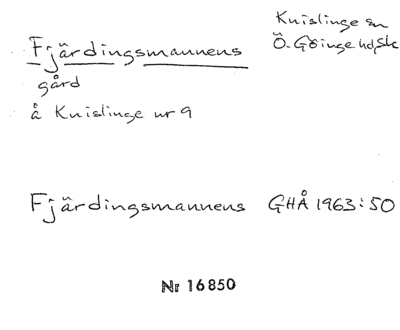 Knislinge sn
Ö. Göinge hd, Sk
Fjärdingsmannens
gård
å Knislinge nr 9
Fjärdingsmannens GHÅ 1963:50
Nr 16850